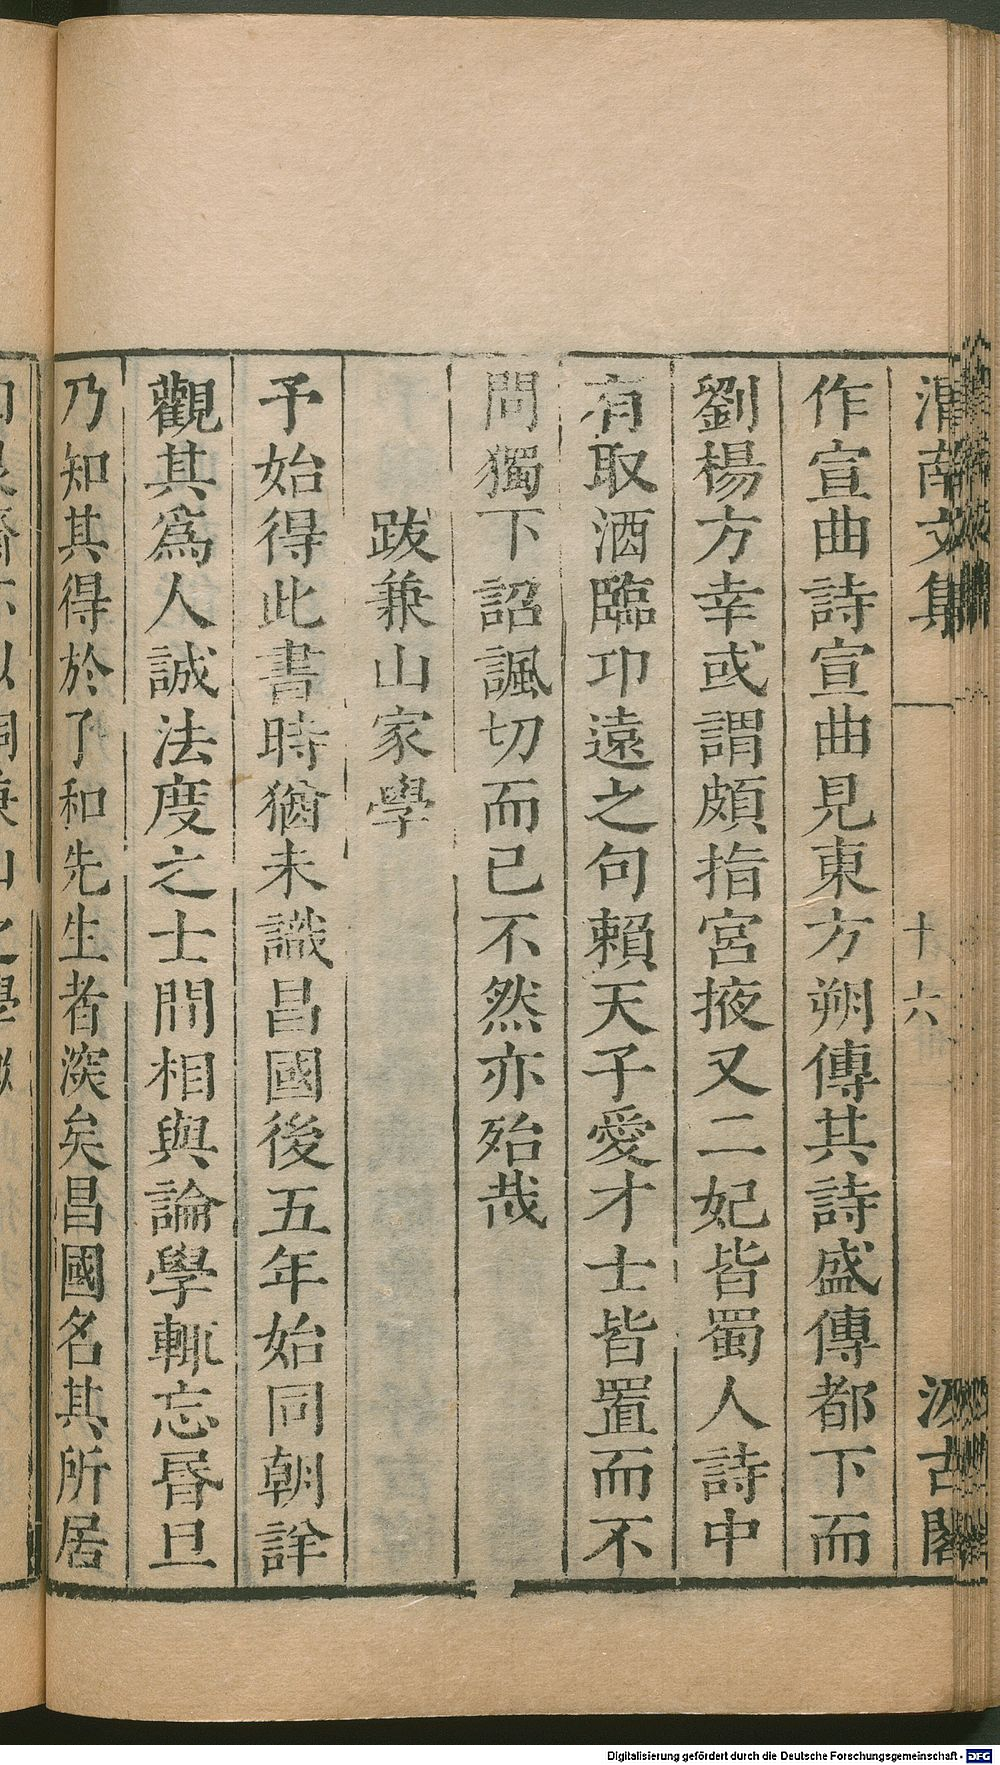 渭南文集 十六 汲古閣
作宣曲詩宣曲見東方朔傳其詩盛傳都下而
劉楊方幸或謂頗指宮掖又二妃皆蜀人詩中
有取酒臨卭遠之句賴天子愛才士皆置而不
問獨下詔諷切而已不然亦殆哉
跋兼山家學
予始得此書時猶未識昌國後五年始同朝詳
觀其爲人誠法度之士閒相與論學輒忘昬旦
乃知其得於了和先生者深矣昌國名其所居
Digitalisierung gefördert durch die Deutsche Forschungsgemeinschaft - DFG